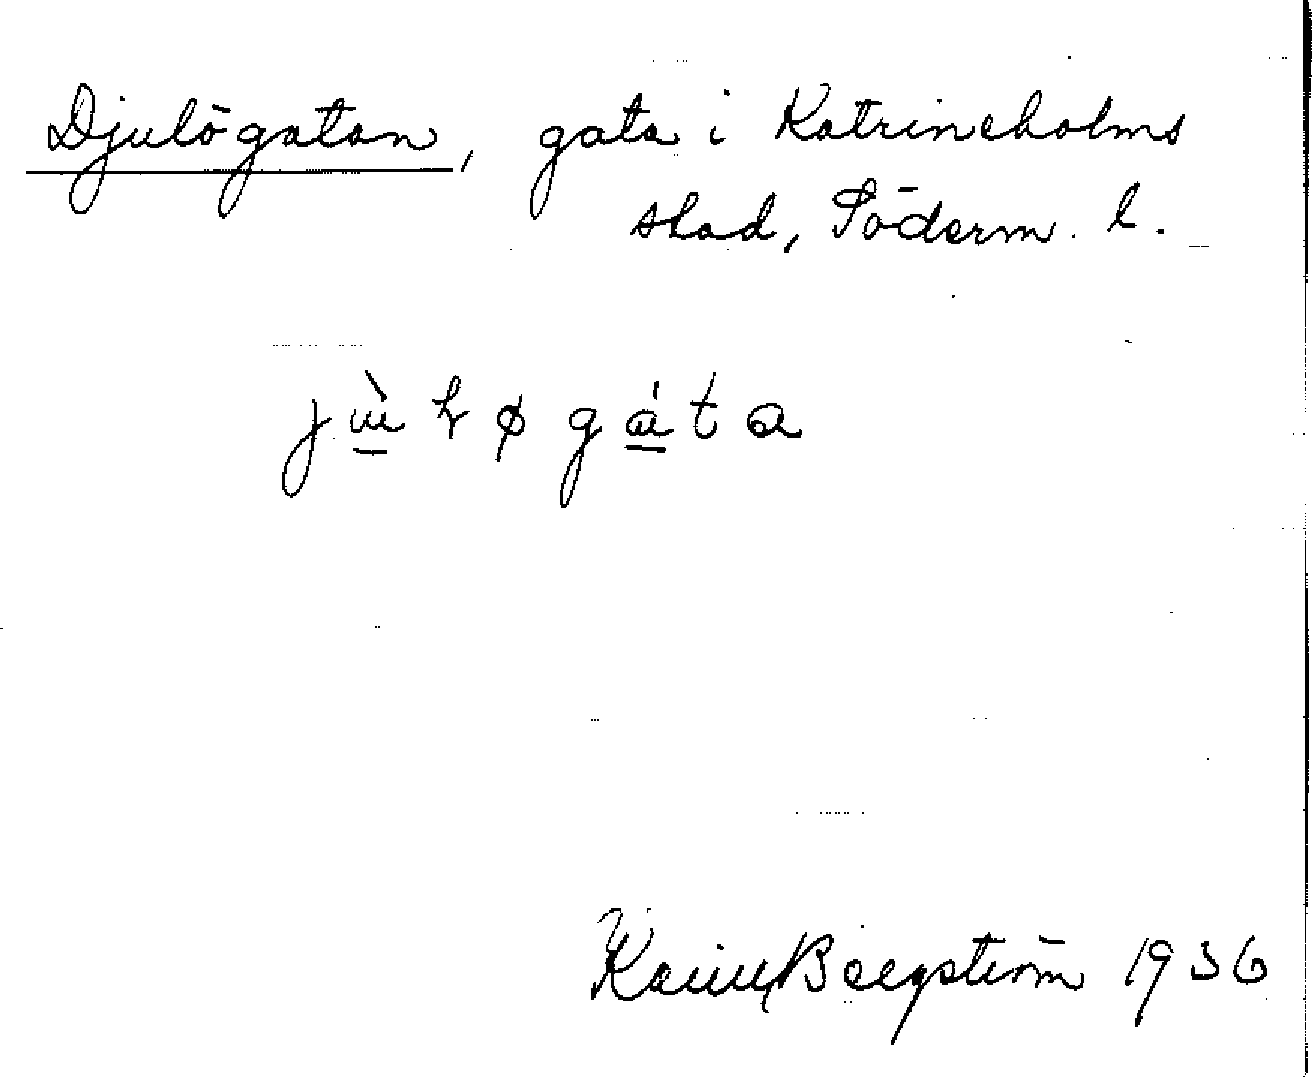 Djulögatan, gata i Katrineholms
stad, Söderm. l.
jùlø gáta
Bergström 1936